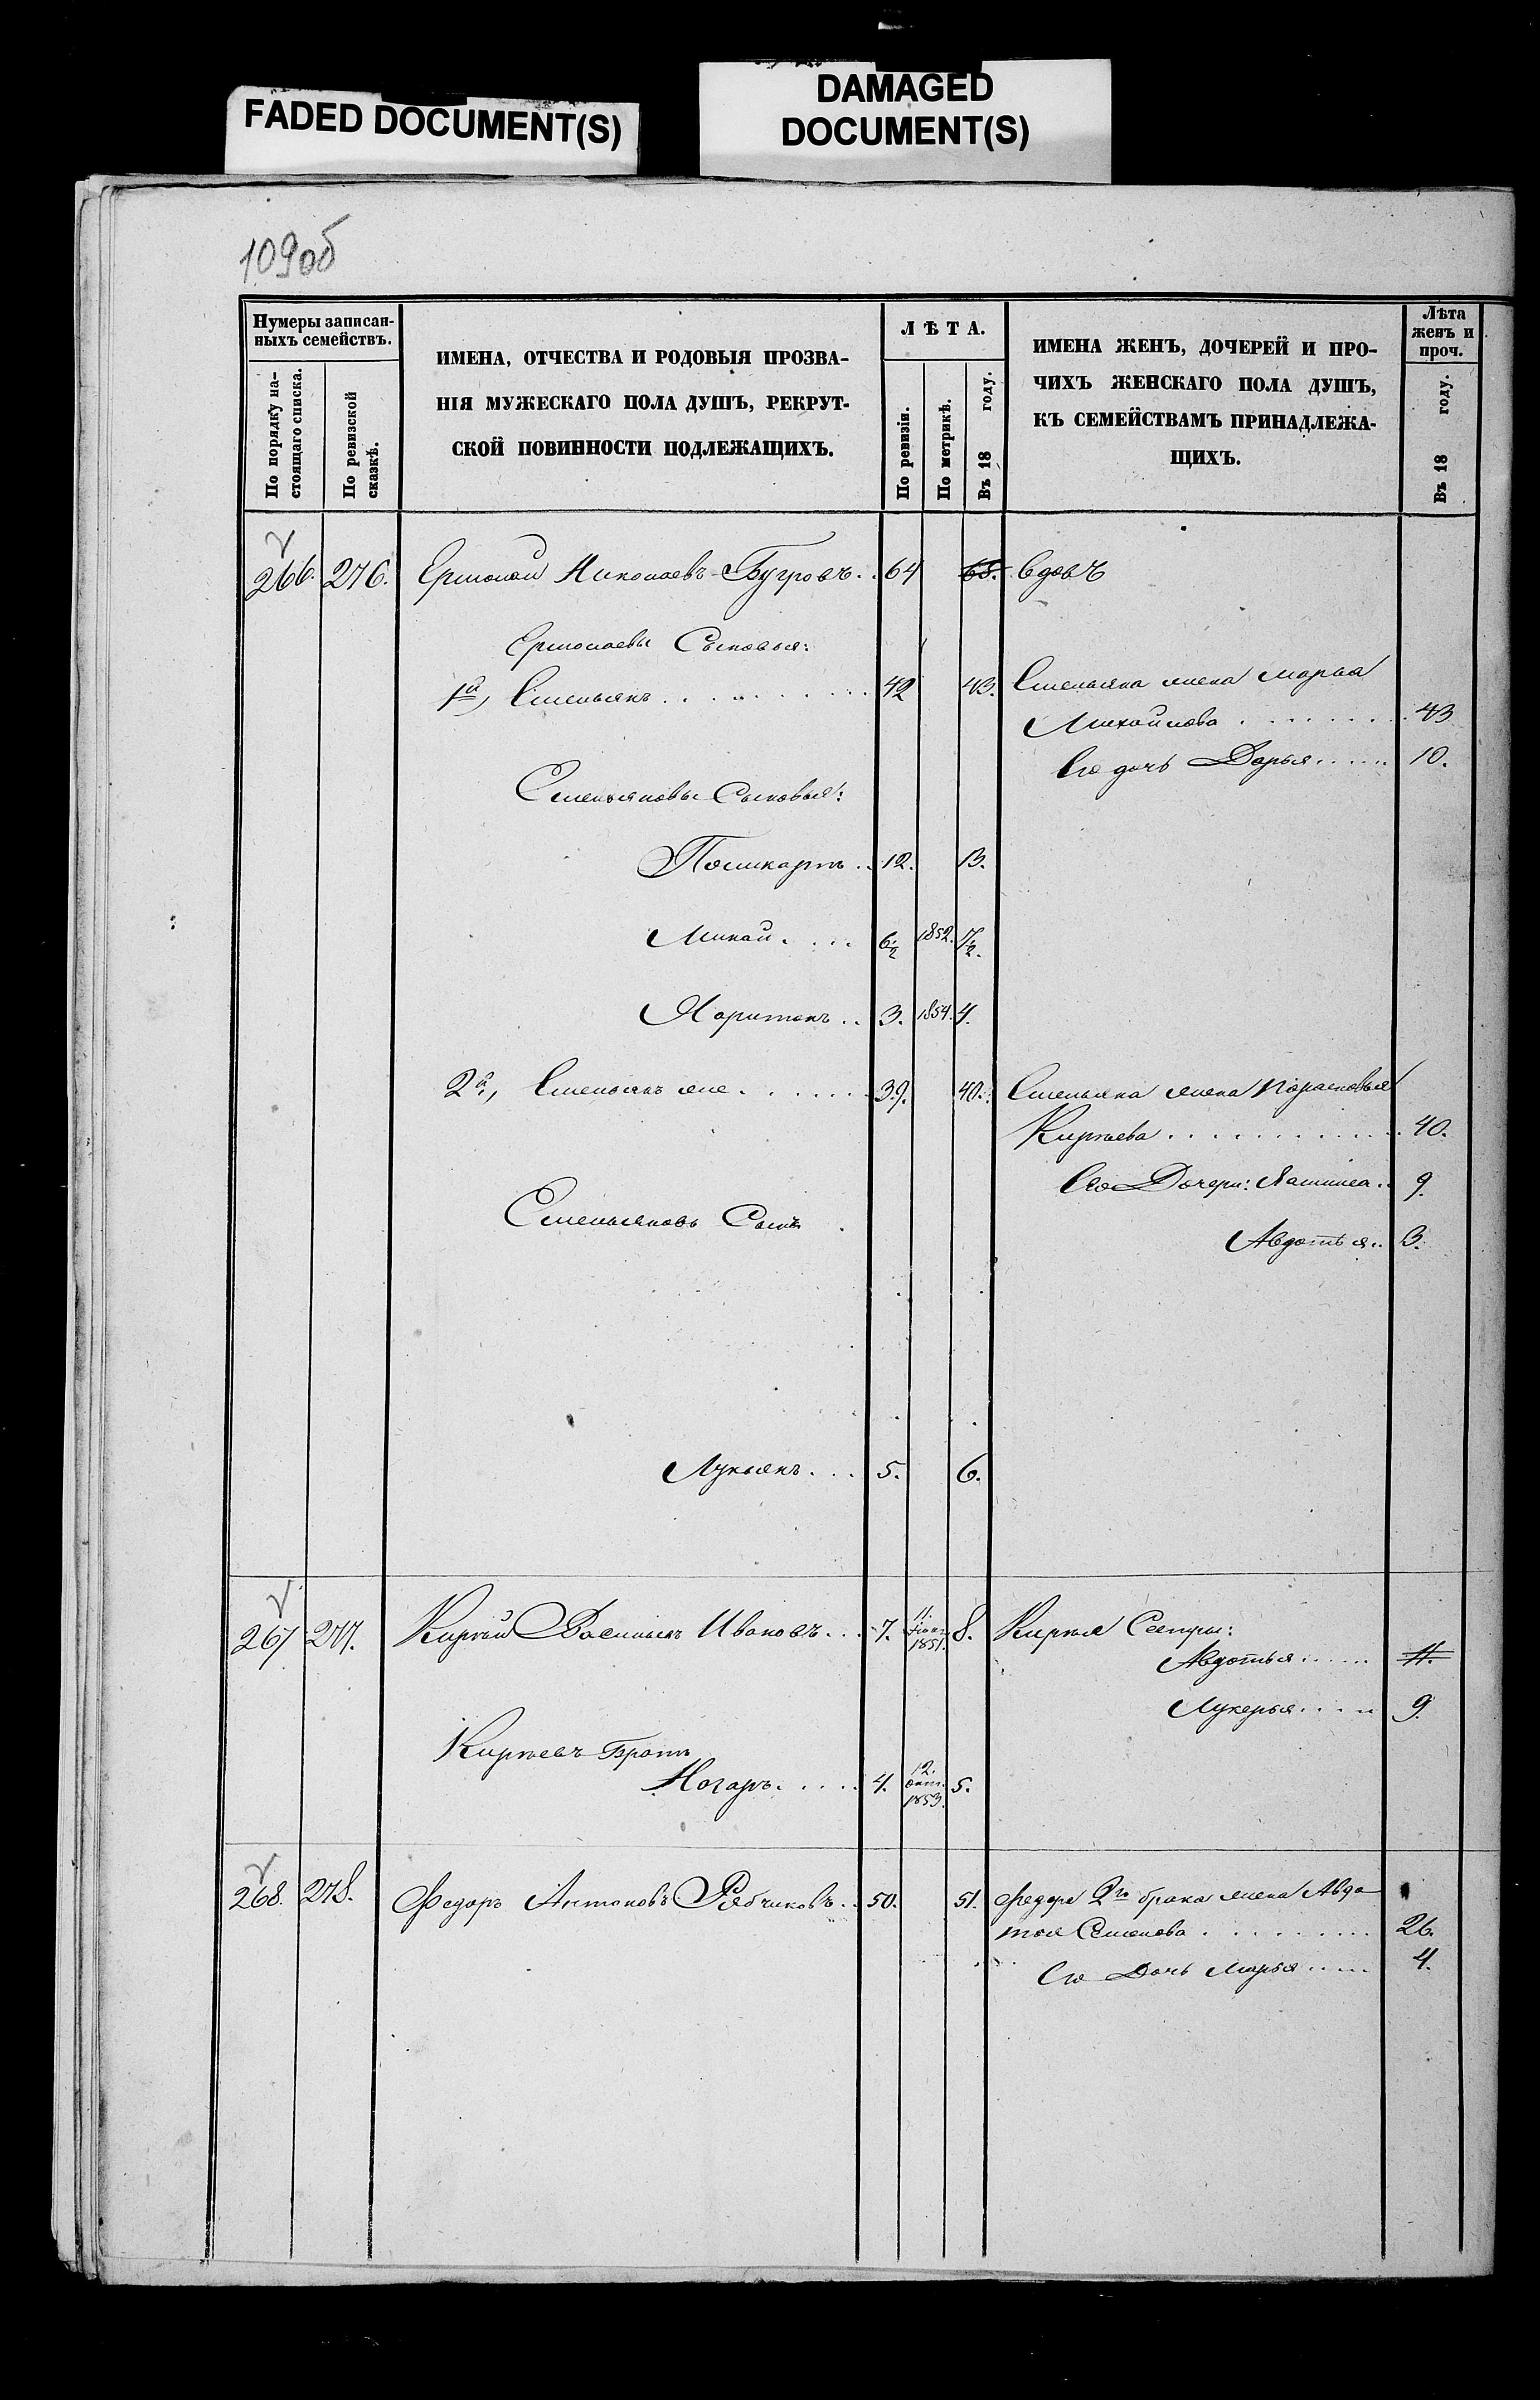 FADED DOCUMENT(S)
DAMAGED
DOCUMENT(S)
109об
Нумеры записан-
ныхъ семействъ.
По порядку на-
стоящаго списка.
По ревизской
сказкѣ.
ИМЕНА, ОТЧЕСТВА И РОДОВЫЯ ПРОЗВА-
НІЯ МУЖЕСКАГО ПОЛА ДУШЪ, РЕКРУТ-
СКОЙ ПОВИННОСТИ ПОДЛЕЖАЩИХЪ.
ЛѢТА.
По ревизіи.
По метрикѣ.
Въ 18 году.
ИМЕНА ЖЕНЪ, ДОЧЕРЕЙ И ПРО-
ЧИХЪ ЖЕНСКАГО ПОЛА ДУШЪ,
КЪ СЕМЕЙСТВАМЪ ПРИНАДЛЕЖА-
ЩИХЪ.
Лѣта
женъ и
проч.
Въ 18 году.
266. 276. Ермолай Николаевъ Бугровъ.. 64 65. вдовъ
Ермолаевы Сыновья:
1й, Емельянъ 42 43. Емельяна жена Марья
Михайлова 43
Его дочь Дарья 10.
Емельяновы Сыновья:
Поликарпъ.. 12. 13.
Минай 6½ 1852. 7½.
Харитонъ.. 3. 1854. 4.
2й, Емельянъ же 39. 40. Емельяна жена Парасковья
Киръева 40.
Его Дочери: 9.
Емельяновъ Сынъ
Авдотья.. 3.
Лукьянъ 5. 6.
267 277. Кирѣй Васильевъ Ивановъ 7. 11. 1851. 8. Кирѣя Сестры:
Авдотья 11.
Лукерья 9.
Кирѣевъ Братъ
4. 12. окт. 1853. 5.
268. 278. Федоръ Антоновъ Рябчиковъ.. 50. 51. Федора 2го брака жена Авдо
тья Семенова 26.
Его Дочь Марья 4.